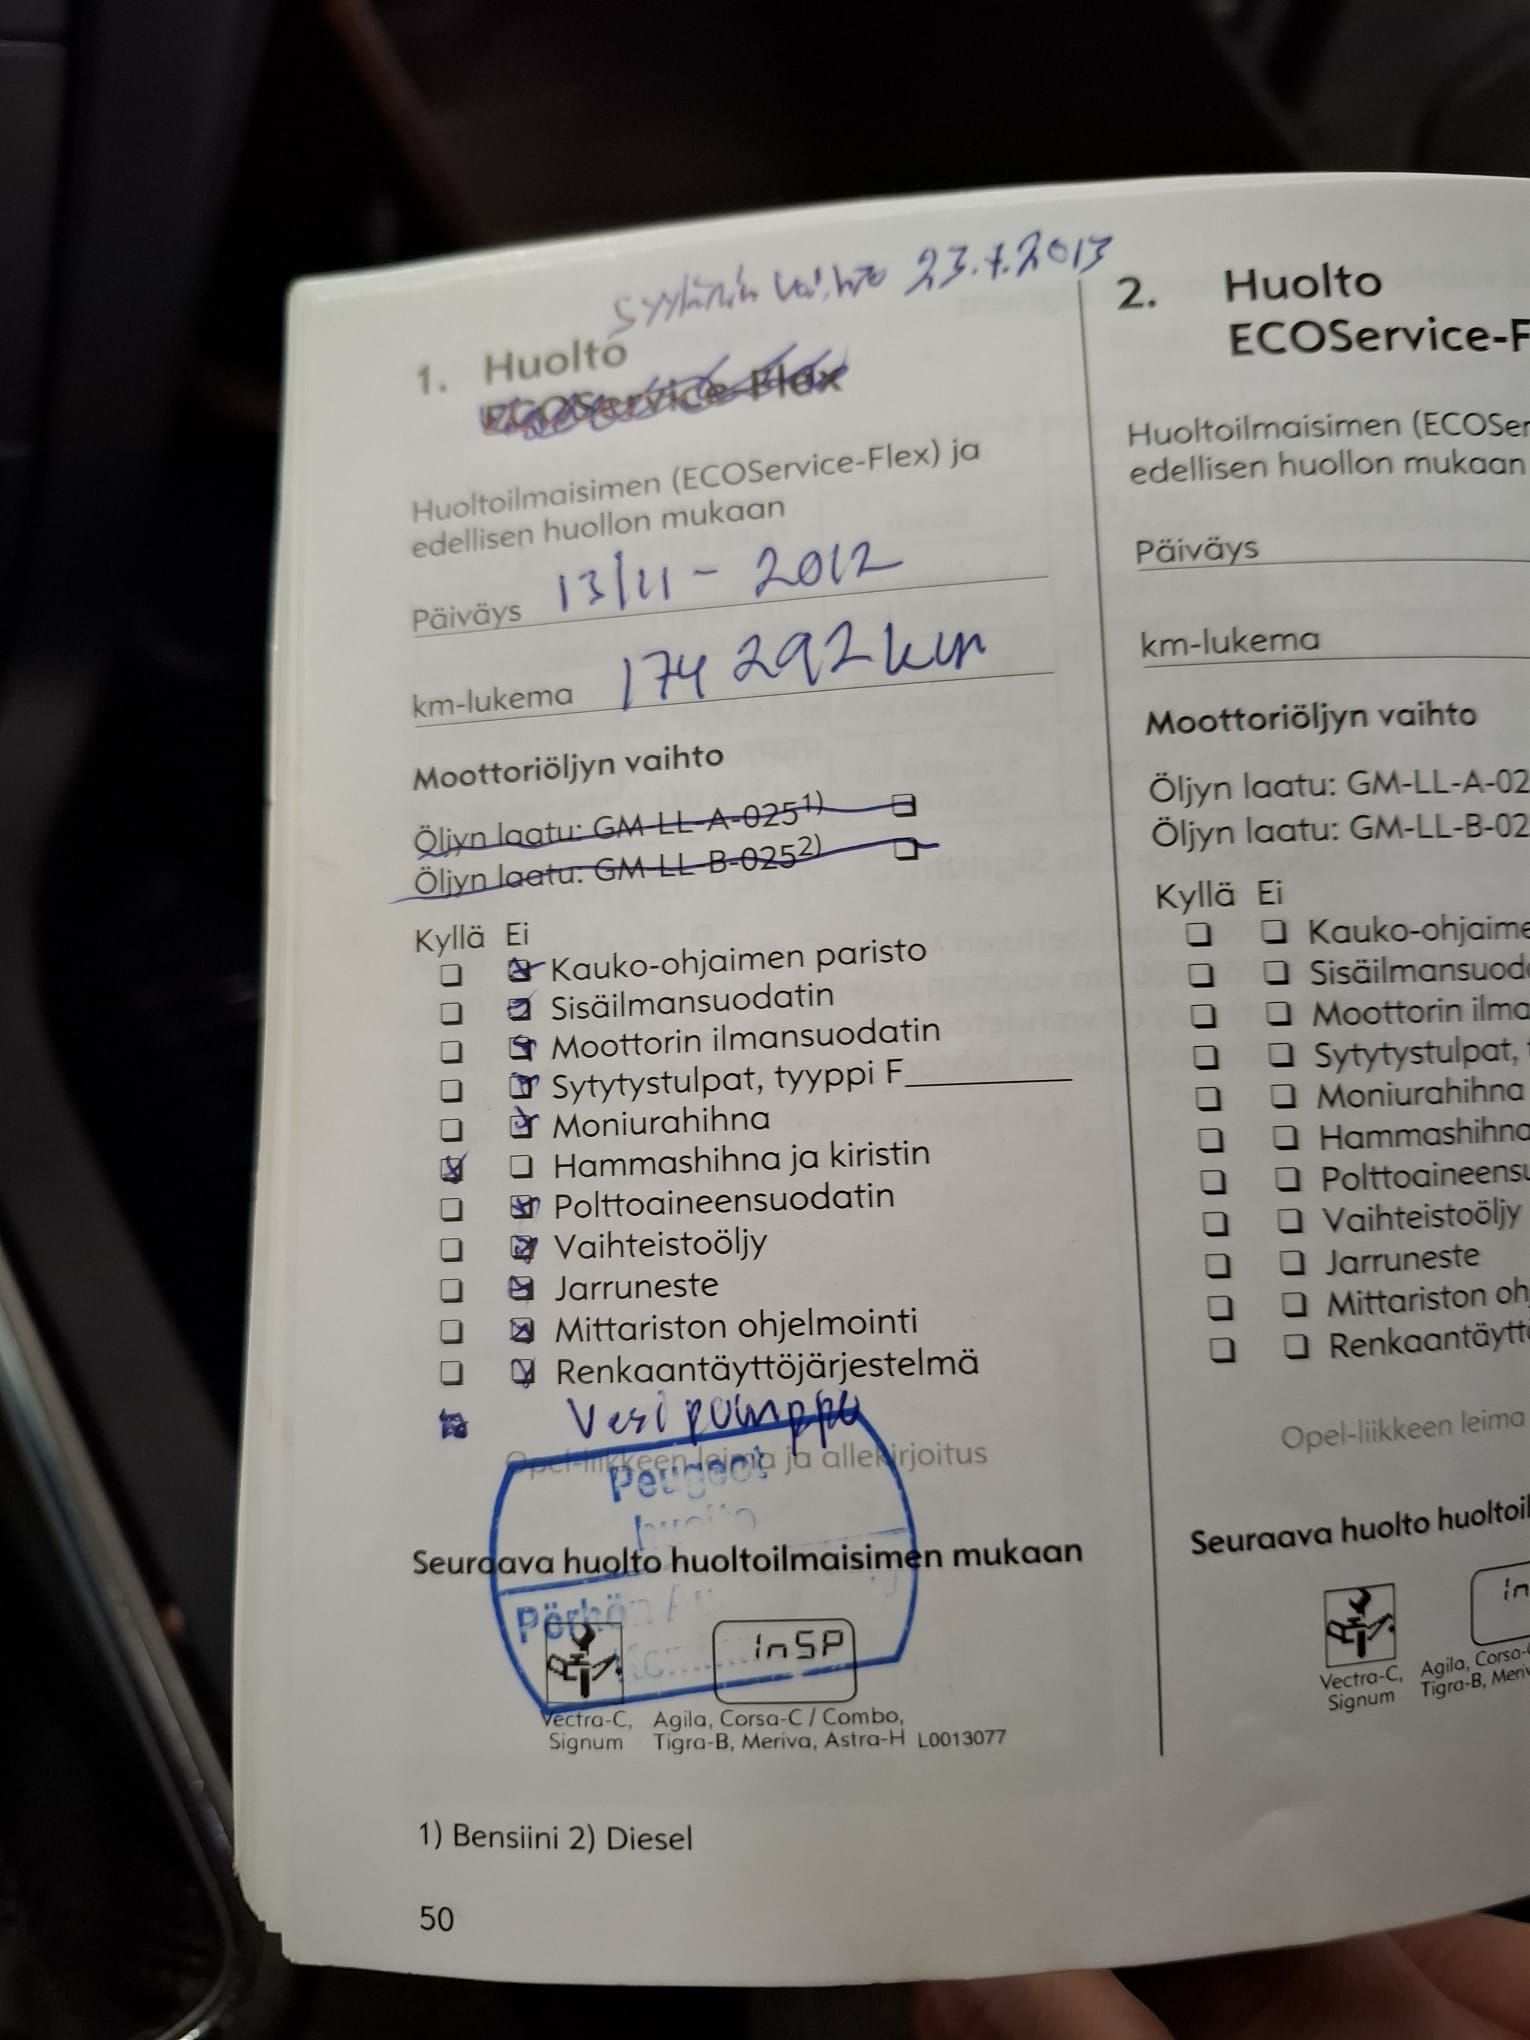 vaihto 23.7.2013
1. Huolto
ECOService-Flex
Huoltoilmaisimen (ECOService-Flex) ja
edellisen huollon mukaan
Päiväys 13/11 - 2012
km-lukema 174 292 km
Moottoriöljyn vaihto
Öljyn laatu: GM-LL-A-025 1)
Öljyn laatu: GM-LL-B-025 2)
Kyllä Ei
Kauko-ohjaimen paristo
Sisäilmansuodatin
Moottorin ilmansuodatin
Sytytystulpat, tyyppi F
Moniurahihna
Hammashihna ja kiristin
Polttoaineensuodatin
Vaihteistoöljy
Jarruneste
Mittariston ohjelmointi
Renkaantäyttöjärjestelmä
Vesipumppu
Opel-liikkeen leima ja allekirjoitus
Peugeot
huolto
Seuraava huolto huoltoilmaisimen mukaan
Pörhön
InSP
Vectra-C,
Signum
Agila, Corsa-C / Combo,
Tigra-B, Meriva, Astra-H L0013077
1) Bensiini 2) Diesel
50
2. Huolto
ECOService-F
Huoltoilmaisimen (ECOSer
edellisen huollon mukaan
Päiväys
km-lukema
Moottoriöljyn vaihto
Öljyn laatu: GM-LL-A-02
Öljyn laatu: GM-LL-B-02
Kyllä Ei
Kauko-ohjaime
Sisäilmansuod
Moottorin ilma
Sytytystulpat,
Moniurahihna
Hammashihna
Polttoaineensu
Vaihteistoöljy
Jarruneste
Mittariston oh
Renkaantäytt
Opel-liikkeen leima
Seuraava huolto huoltoil
In
Vectra-C,
Signum
Agila, Corsa-
Tigra-B, Meriv